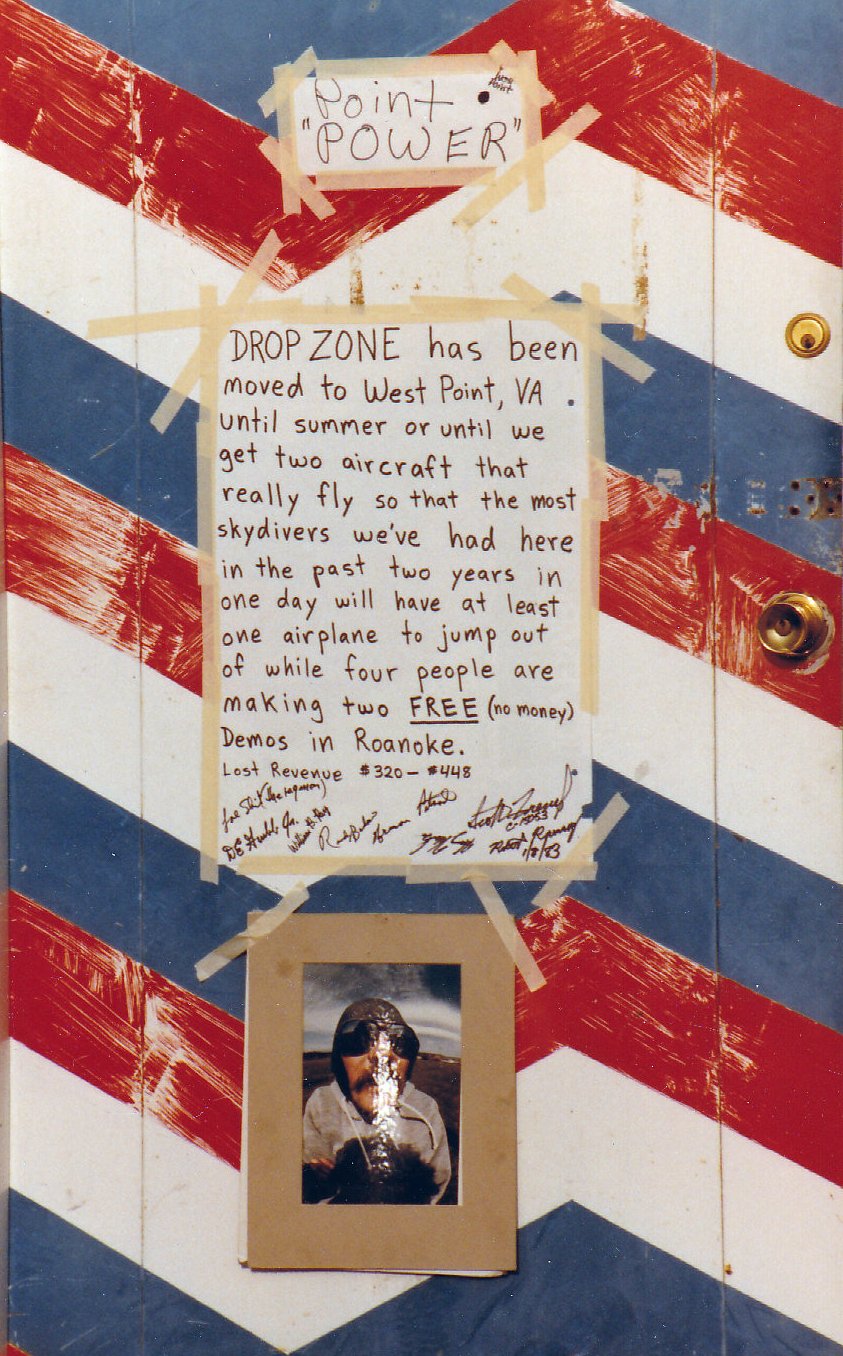 Point
"POWER"
DROP ZONE has been
moved to West Point, VA.
until summer or until we
get two aircraft that
really fly so that the most
skydivers we've had here
in the past two years in
one day will have at least
one airplane to jump out
of while four people are
making two FREE (no money)
Demos in Roanoke.
Lost Revenue $320 - $448
1/8/83